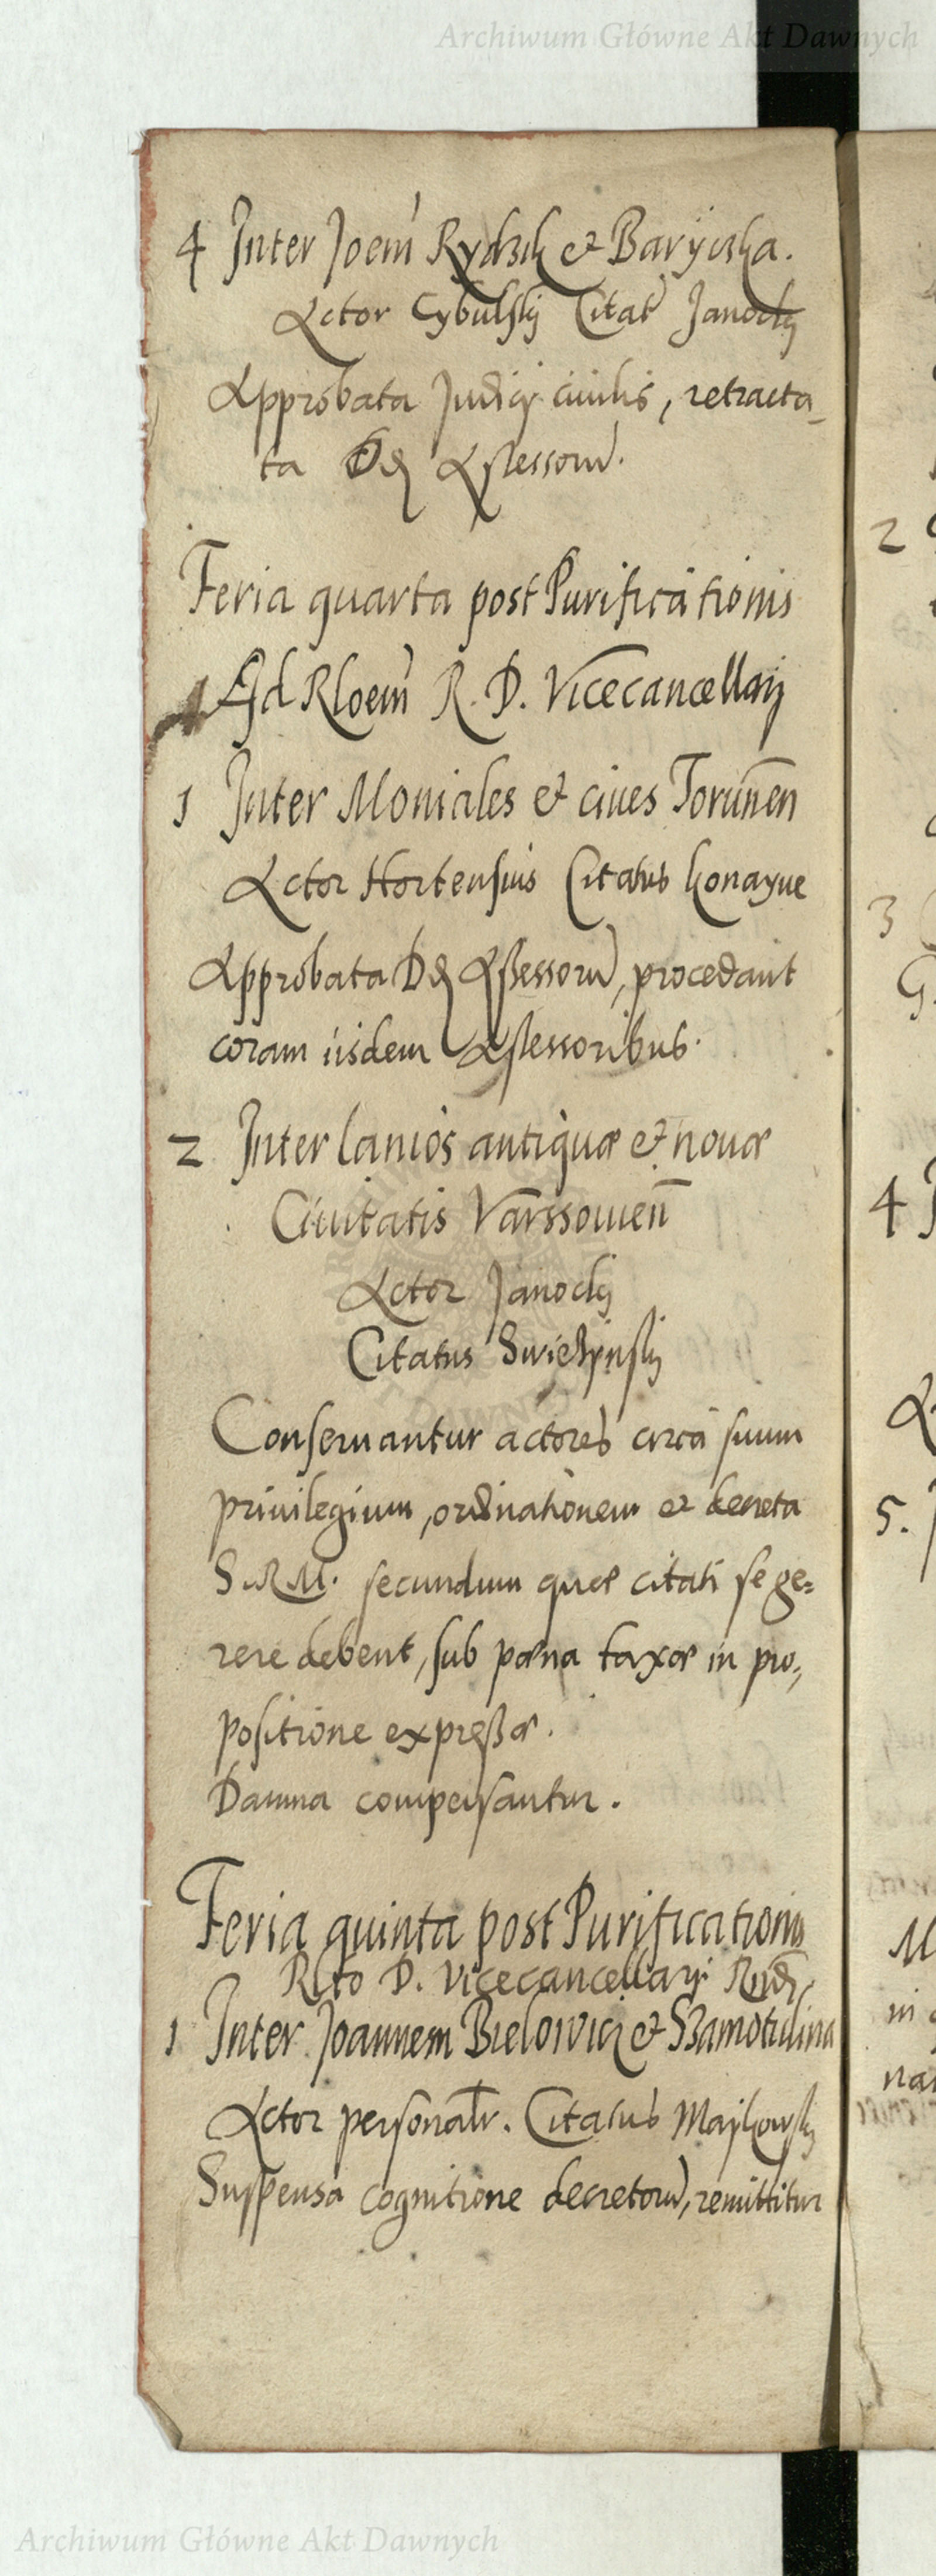 Archiwum Główne Akt Dawnych
4 Inter Joem Rydsch et Baryczka.
Actor Cybulskij Citat Janockij
Approbata Judicij ciuilis, retracta-
ta DD Assessorum.
Feria quarta post Purificationis
Ad Rloem R. D. Vicecancellarij
1 Inter Moniales et ciues Torunen
Actor Hortensius Citatus
Approbata DD Assessorum, procedant
coram iisdem Assessoribus.
2 Inter lanios antiquæ et nouæ
Ciuitatis Varssouien
Actor Janockij
Citatus
Conseruantur actores circa suum
priuilegium, ordinationem et decreta
S. R. M. secundum quæ citati se ge=
rere debent, sub pæna taxæ in pro,
positione expressæ.
Damna compensantur.
Feria quinta post Purificationis
Rlto D. Vicecancellarij
1 Inter Joannem Bielowicz et Szamotulina
Actor personalr. Citatus Majkowskij
Suspensa cognitione decretorum, remittitur
2
3
G.
4
5.
Archiwum Główne Akt Dawnych